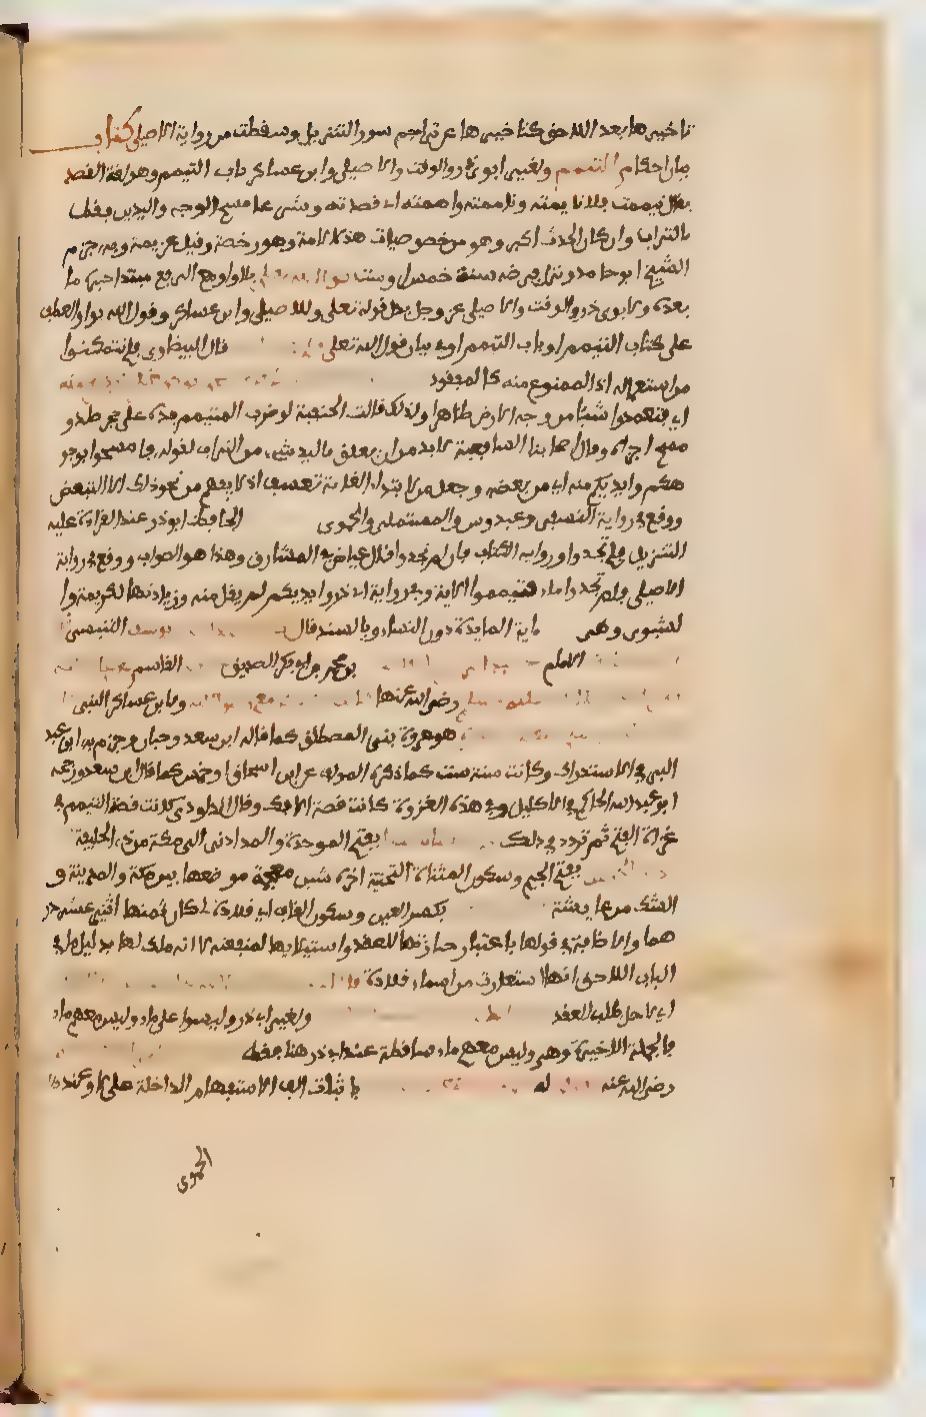 تاخيرها بعد اللاحق كتاخيرها عن تراجم سور التنزيل وسقطت من رواية الاصيلي كتاب
بيان احكام التيمم ولغير ابوي ذر والوقت والاصيلي وابن عساكر باب التيمم وهو لغة القصد
يقال تيممت فلانا يممته وتاممته واممته اي قصدته وشرعا مسح الوجه واليدين فقط
بالتراب وان كان الحدث اكبر وهو من خصوصيات هذه الامة وهو رخصة وقيل عزيمة وبه جزم
الشيخ ابو حامد ونزل فرضه سنة خمس او ست قول الله تعلى بلا واو مع الرفع مبتدا خبره ما
بعده ولابوي ذر والوقت والاصيلي عز وجل بدل قوله تعلى وللاصيلي وابن عساكر وقول الله بواو العطف
على كتاب التيمم او باب التيمم او في بيان قول الله تعلى قال البيضاوي فلم تتمكنوا
من استعماله اذ الممنوع منه كالمفقود
اي فتعمدوا شيئا من وجه الارض طاهرا ولذلك قالت الحنفية لو ضرب المتيمم يده على حجر صلد و
مسح اجزاه وقال اصحابنا الشافعية لا بد من ان يعلق باليد شيء من التراب لقوله فامسحوا بوجو
هكم وايديكم منه اي من بعضه وجعل من لابتداء الغاية تعسف اذ لا يفهم من نحو ذلك الا التبعيض
ووقع في رواية النسفي وعبدوس والمستملي والحموي الحافظ ابو ذر عند القراءة عليه
التنزيل فلم تجدوا ورواية الكتاب فان لم تجدوا قال عياض في المشارق وهذا هو الصواب ووقع في رواية
الاصيلي فلم تجدوا ماء فتيمموا الاية وفي رواية ابي ذر وايديكم لم يقل منه وزيادتها لكريمة وا
لشبوي وهي اية المايدة دون النساء وبالسند قال يوسف التنيسي
الامام بن محمد بن ابي بكر الصديق القاسم
رضي الله عنها ولابن عساكر النبي
هو غزوة بني المصطلق كما قاله ابن سعد وحبان وجزم به ابن عبد
البر في الاستدراك وكانت سنة ست كما ذكره المولف عن ابن اسحاق او خمس كما قال ابن سعد ورجحه
ابو عبد الله الحاكم في الاكليل وفي هذه الغزوة كانت قصة الافك وقال الداودي كانت قصة التيمم في
غزاة الفتح ثم تردد في ذلك بفتح الموحدة والمد ادنى الى مكة من ذي الحليفة
بفتح الجيم وسكون المثناة التحتية اخره شين معجمة موضعها بين مكة والمدينة و
الشك من عايشة بكسر العين وسكون القاف اي قلادة لي كان ثمنها اثني عشر در
هما والاضافة في قولها باعتبار حيازتها للعقد واستيلايها لمنفعته لا انه ملك لها بدليل ما في
الباب اللاحق انها استعارت من اسماء قلادة
اي لاجل طلب العقد ولغير ابي ذر وليسوا على ماء وليس معهم ماء
فالجملة الاخيرة وهي وليس معهم ماء ساقطة عند ابي ذر هنا فقط
رضي الله عنه له باثبات الف الاستفهام الداخلة على لا وعند
الحموي